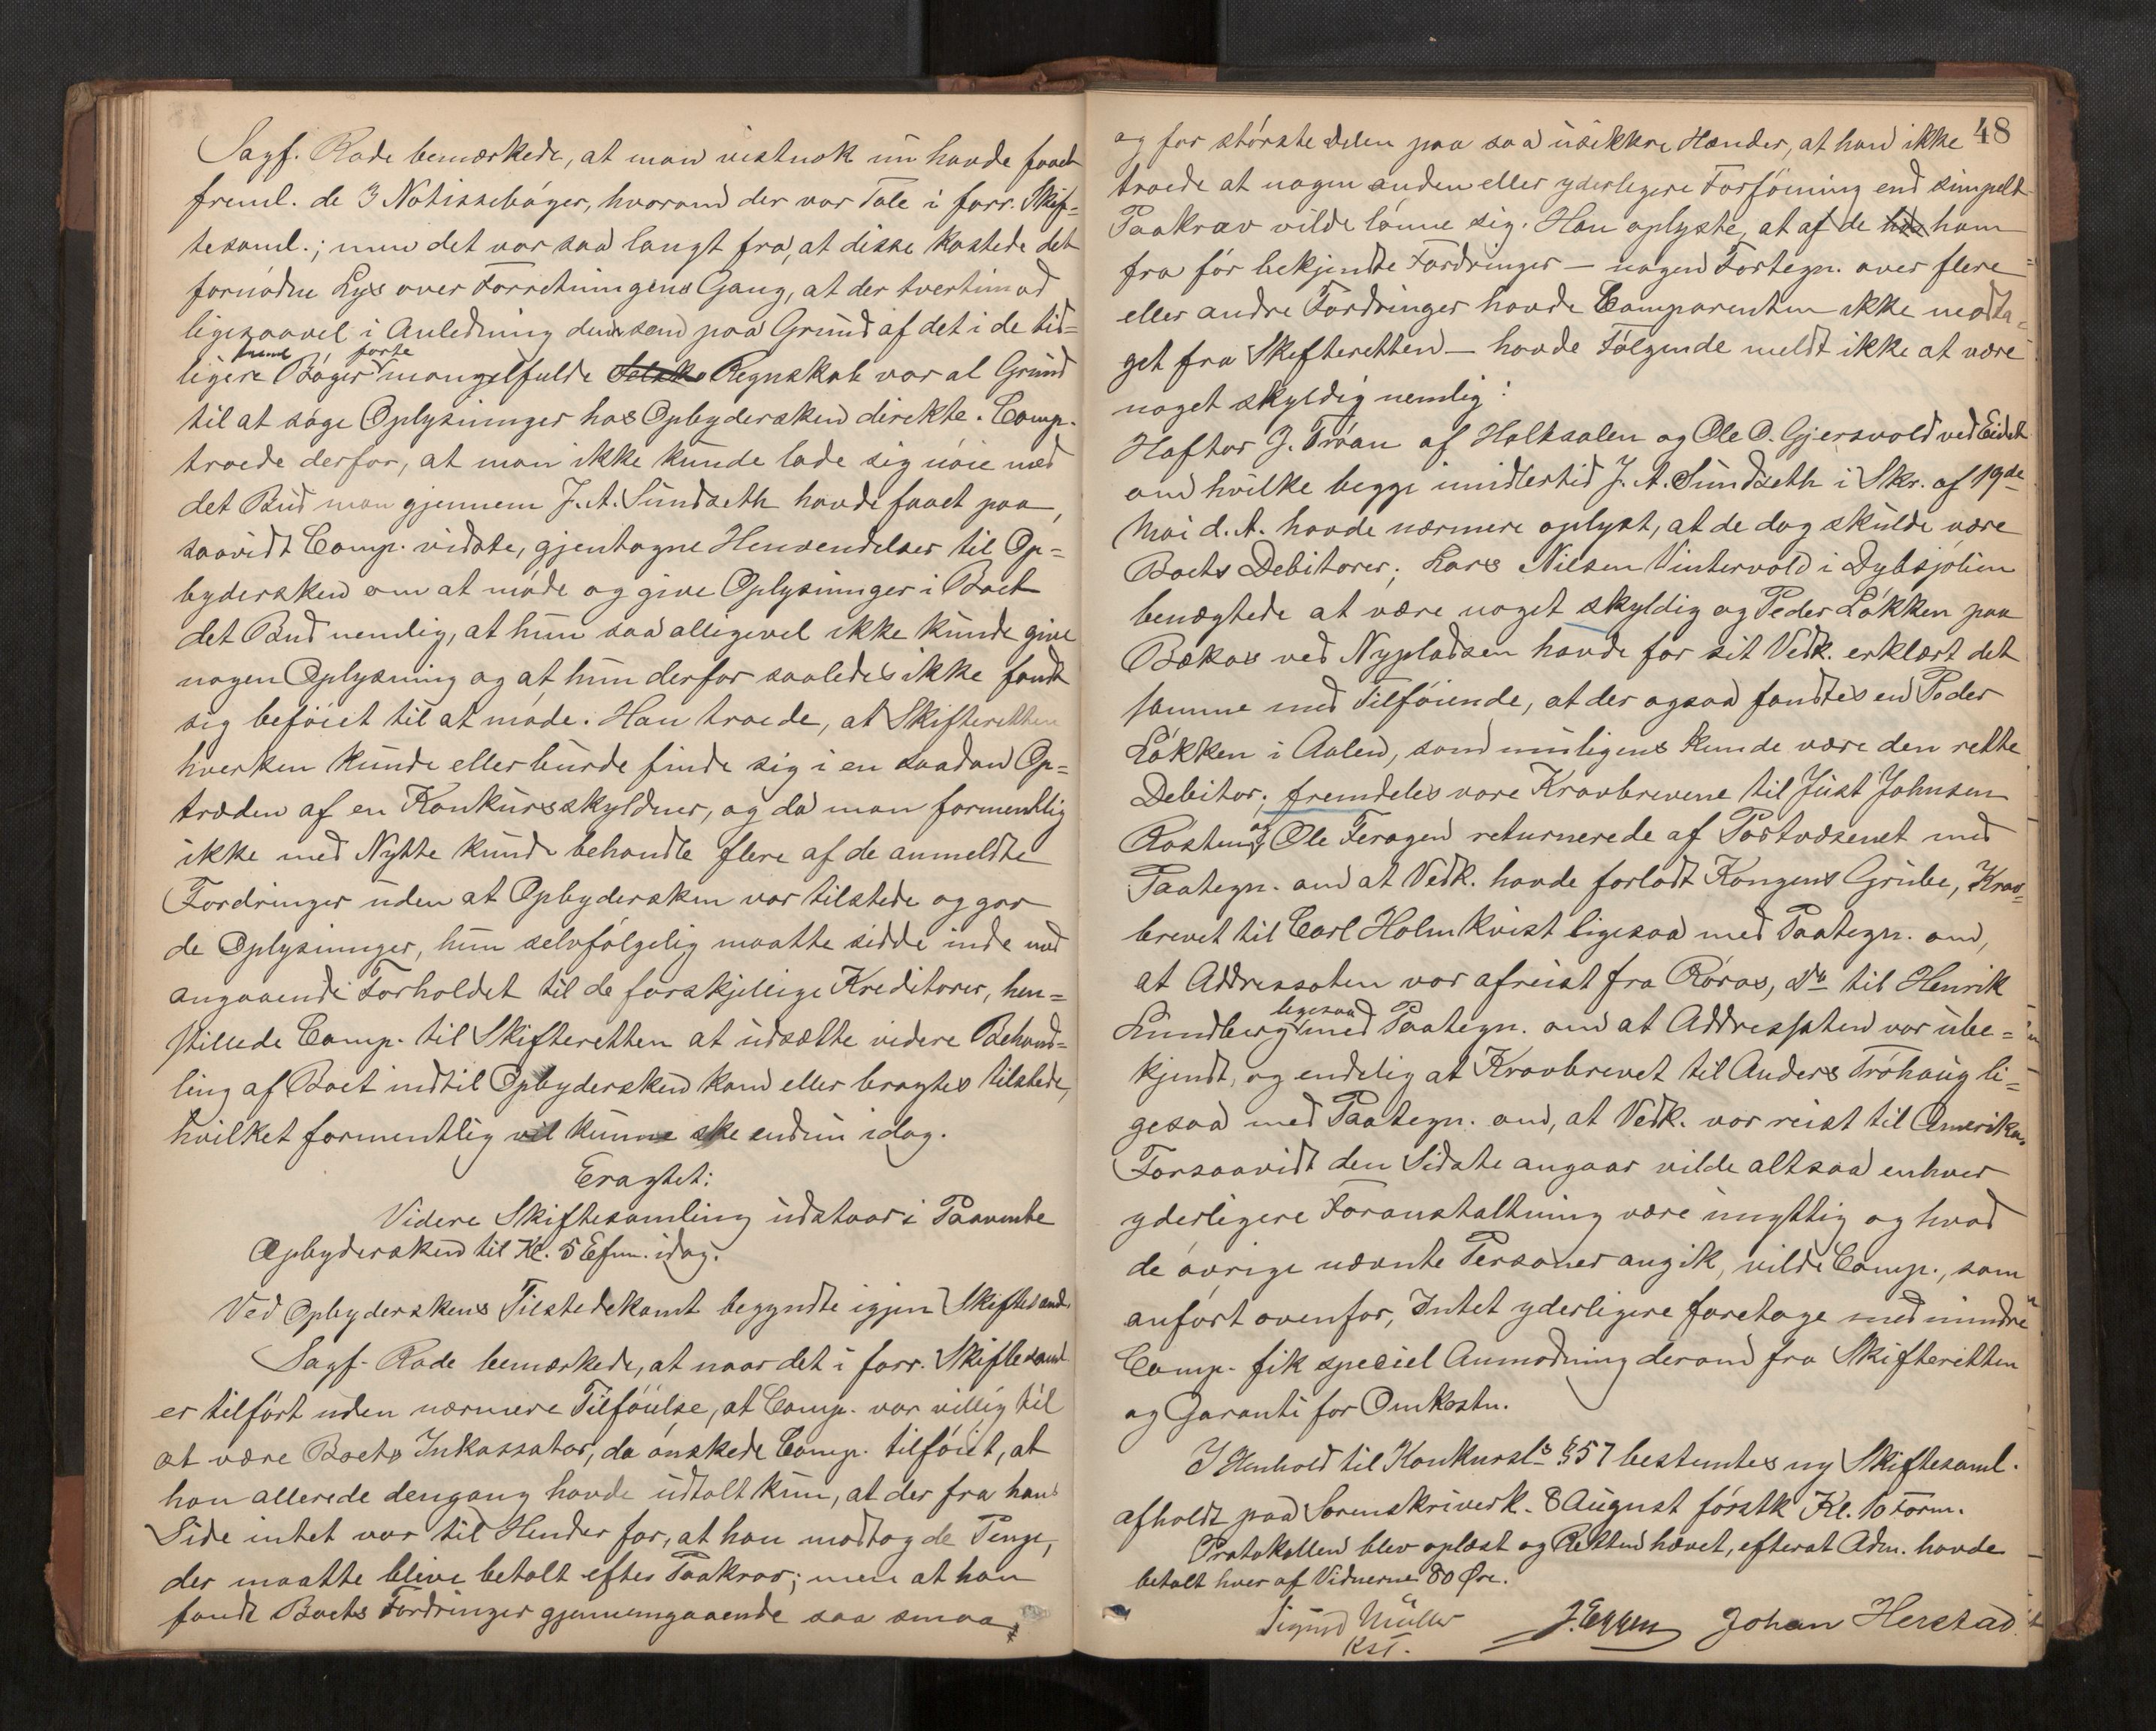 Sagf. Rode bemærkede, at man vistnok nu havde faaet
freml. de 3 Notissebøger, hvorom der var Tale i forr. Skif-
tesaml.; men det var saa langt fra, at disse kastede det
fornødne Lys over Forretningens Gang, at der tvertimod
ligesaavel i Anledning dem som paa Grund af det i de tid-
freml førte
ligere Bøger mangelfulde Regnskab var al Grund
til at søge Oplysninger hos Opbydersken direkte. Comp.
troede derfor, at man ikke kunde lade sig nøie med
det Bud man gjennem J. A. Sundseth havde faaet paa,
saavidt Comp. vidste, gjentagne Henvendelser til Op-
bydersken om at møde og give Oplysninger i Boet
det Bud nemlig, at hun saa alligevel ikke kunde give
nogen Oplysning og at hun derfor saaledes ikke fandt
sig beføiet til at møde. Han troede, at Skifteretten
hverken kunde eller burde finde sig i en saadan Op-
træden af en Konkursskyldner, og da man formentlig
ikke med Nytte kunde behandle flere af de anmeldte
Fordringer uden at Opbydersken var tilstede og gav
de Oplysninger, hun selvfølgelig maatte sidde inde med
angaaende Forholdet til de forskjellige Kreditorer, hen-
stillede Comp. til Skifteretten at udsætte videre Behand-
ling af Boet indtil Opbydersken kom eller bragtes tilstede,
hvilket formentlig vil kunne ske endnu idag.
Eragtet:
Videre Skiftesamling udstaar i Paavente
Opbydersken til Kl. 5 Efm. idag.
Ved Opbyderskens Tilstedekomst begyndte igjen Skiftesaml.
Sagf. Rode bemærkede, at naar det i forr. Skiftesaml
er tilført uden nærmere Tilføielse, at Comp. var villig til
at være Boets Inkassator, da ønskede Comp. tilføiet, at
han allerede dengang havde udtalt kun, at der fra hans
Side intet var til Hinder for, at han modtog de Penge,
der maatte blive betalt efter Paakrav; men at han
fandt Boets Fordringer gjennemgaaende saa smaa
48
og for størstedelen paa saa usikkre Hænder, at han ikke
troede at nogen anden eller yderligere Forføining end simpelt
Paakrav vilde lønne sig. Han oplyste, at af de ham
fra før bekjendte Fordringer - nogen Fortegn. over flere
eller andre Fordringer havde Comparenten ikke modta-
get fra Skifteretten - havde Følgende meldt ikke at være
noget skyldig nemlig:
Haftor J. Trøan af Holtaalen og Ole O. Gjersvold ved Eidet
om hvilke begge imidlertid J. A. Sundseth i Skr. af 19de
Mai d. A. havde nærmere oplyst, at de dog skulde være
Boets Debitorer; Lars Nilsen Vintervold i Dybsjølien
benægtede at være noget skyldig og Peder Løkken paa
Bækos ved Nypladsen havde for sit Vedk. erklært det
samme med Tilføiende, at der ogsaa fandtes en Peder
Løkken i Aalen, som muligens kunde være den rette
Debitor; fremdeles vare Kravbrevene til Just Johnsen
og
Rosten Ole Feragen returnerede af Postvæsenet med
Paategn. om at Vedk. havde forladt Kongens Grube, Krav-
brevet til Carl Holmkvist ligesaa med Paategn. om,
at Addressaten var afreist fra Røros, do til Henrik
ligesaa
Lundberg med Paategn. om at Addressaten var ube-
kjendt, og endelig at Kravbrevet til Anders Trøhaug li-
gesaa med Paategn. om, at Vedk. var reist til Amerika.
Forsaavidt den Sidste angaar vilde altsaa enhver
yderligere Foranstaltning være unyttig og hvad
de øvrige nævnte Personer angik, vilde Comp., som
anført ovenfor, Intet yderligere foretage medmindre
Comp. fik speciel Anmodning derom fra Skifteretten
og Garanti for Omkostn.
I Henhold til Konkursls § 57 bestemtes ny Skiftesaml.
afholdt paa Sorenskriverk. 8 August førstk Kl. 10 Form.
Protokollen blev oplæst og Retten hævet, efterat Adm. havde
betalt hver af Vidnerne 80 Øre.
Sigurd Müller J. Eggen Johan Herstad
Kst.